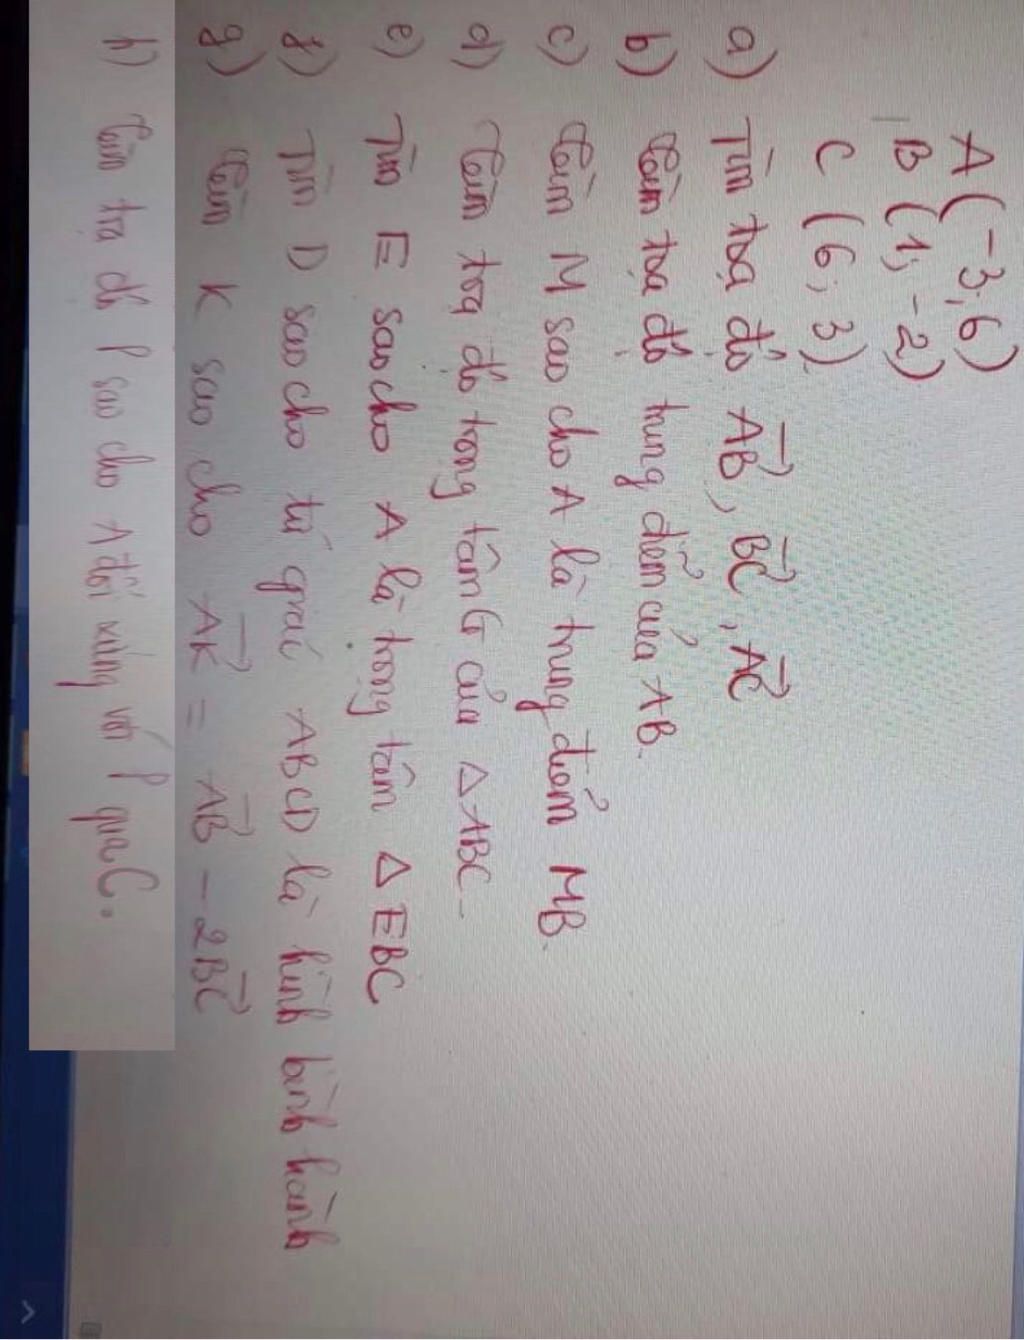 A(-3; 6)
B(1; -2)
C(6; 3)
a) Tìm toạ độ \overrightarrow{AB}, \overrightarrow{BC}, \overrightarrow{AC}
b) Tìm tọa độ trung điểm của AB.
c) Tìm M sao cho A là trung điểm MB.
d) Tìm toạ độ trọng tâm G của △ABC.
e) Tìm E sao cho A là trọng tâm △EBC
f) Tìm D sao cho tứ giác ABCD là hình bình hành
g) Tìm K sao cho \overrightarrow{AK} = \overrightarrow{AB} - 2\overrightarrow{BC}
h) Tìm toạ độ P sao cho A đối xứng với P qua C.